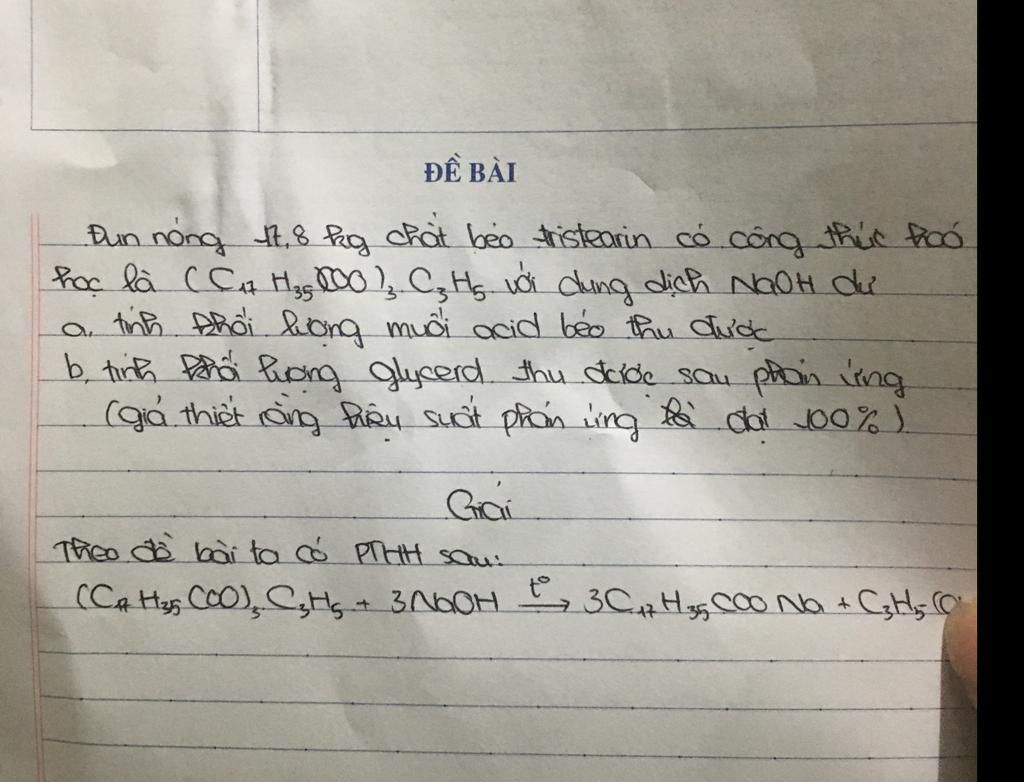 ĐỀ BÀI
Đun nóng 17,8 kg chất béo tristearin có công thức hoá
học là (C₁₇H₃₅COO)₃C₃H₅ với dung dịch NaOH dư
a, tính khối lượng muối acid béo thu được
b, tính khối lượng glycerol thu được sau phản ứng
(giả thiết rằng hiệu suất phản ứng đạt 100%)
Giải
Theo đề bài ta có PTHH sau:
(C₁₇H₃₅COO)₃C₃H₅ + 3NaOH t° → 3C₁₇H₃₅COONa + C₃H₅(O